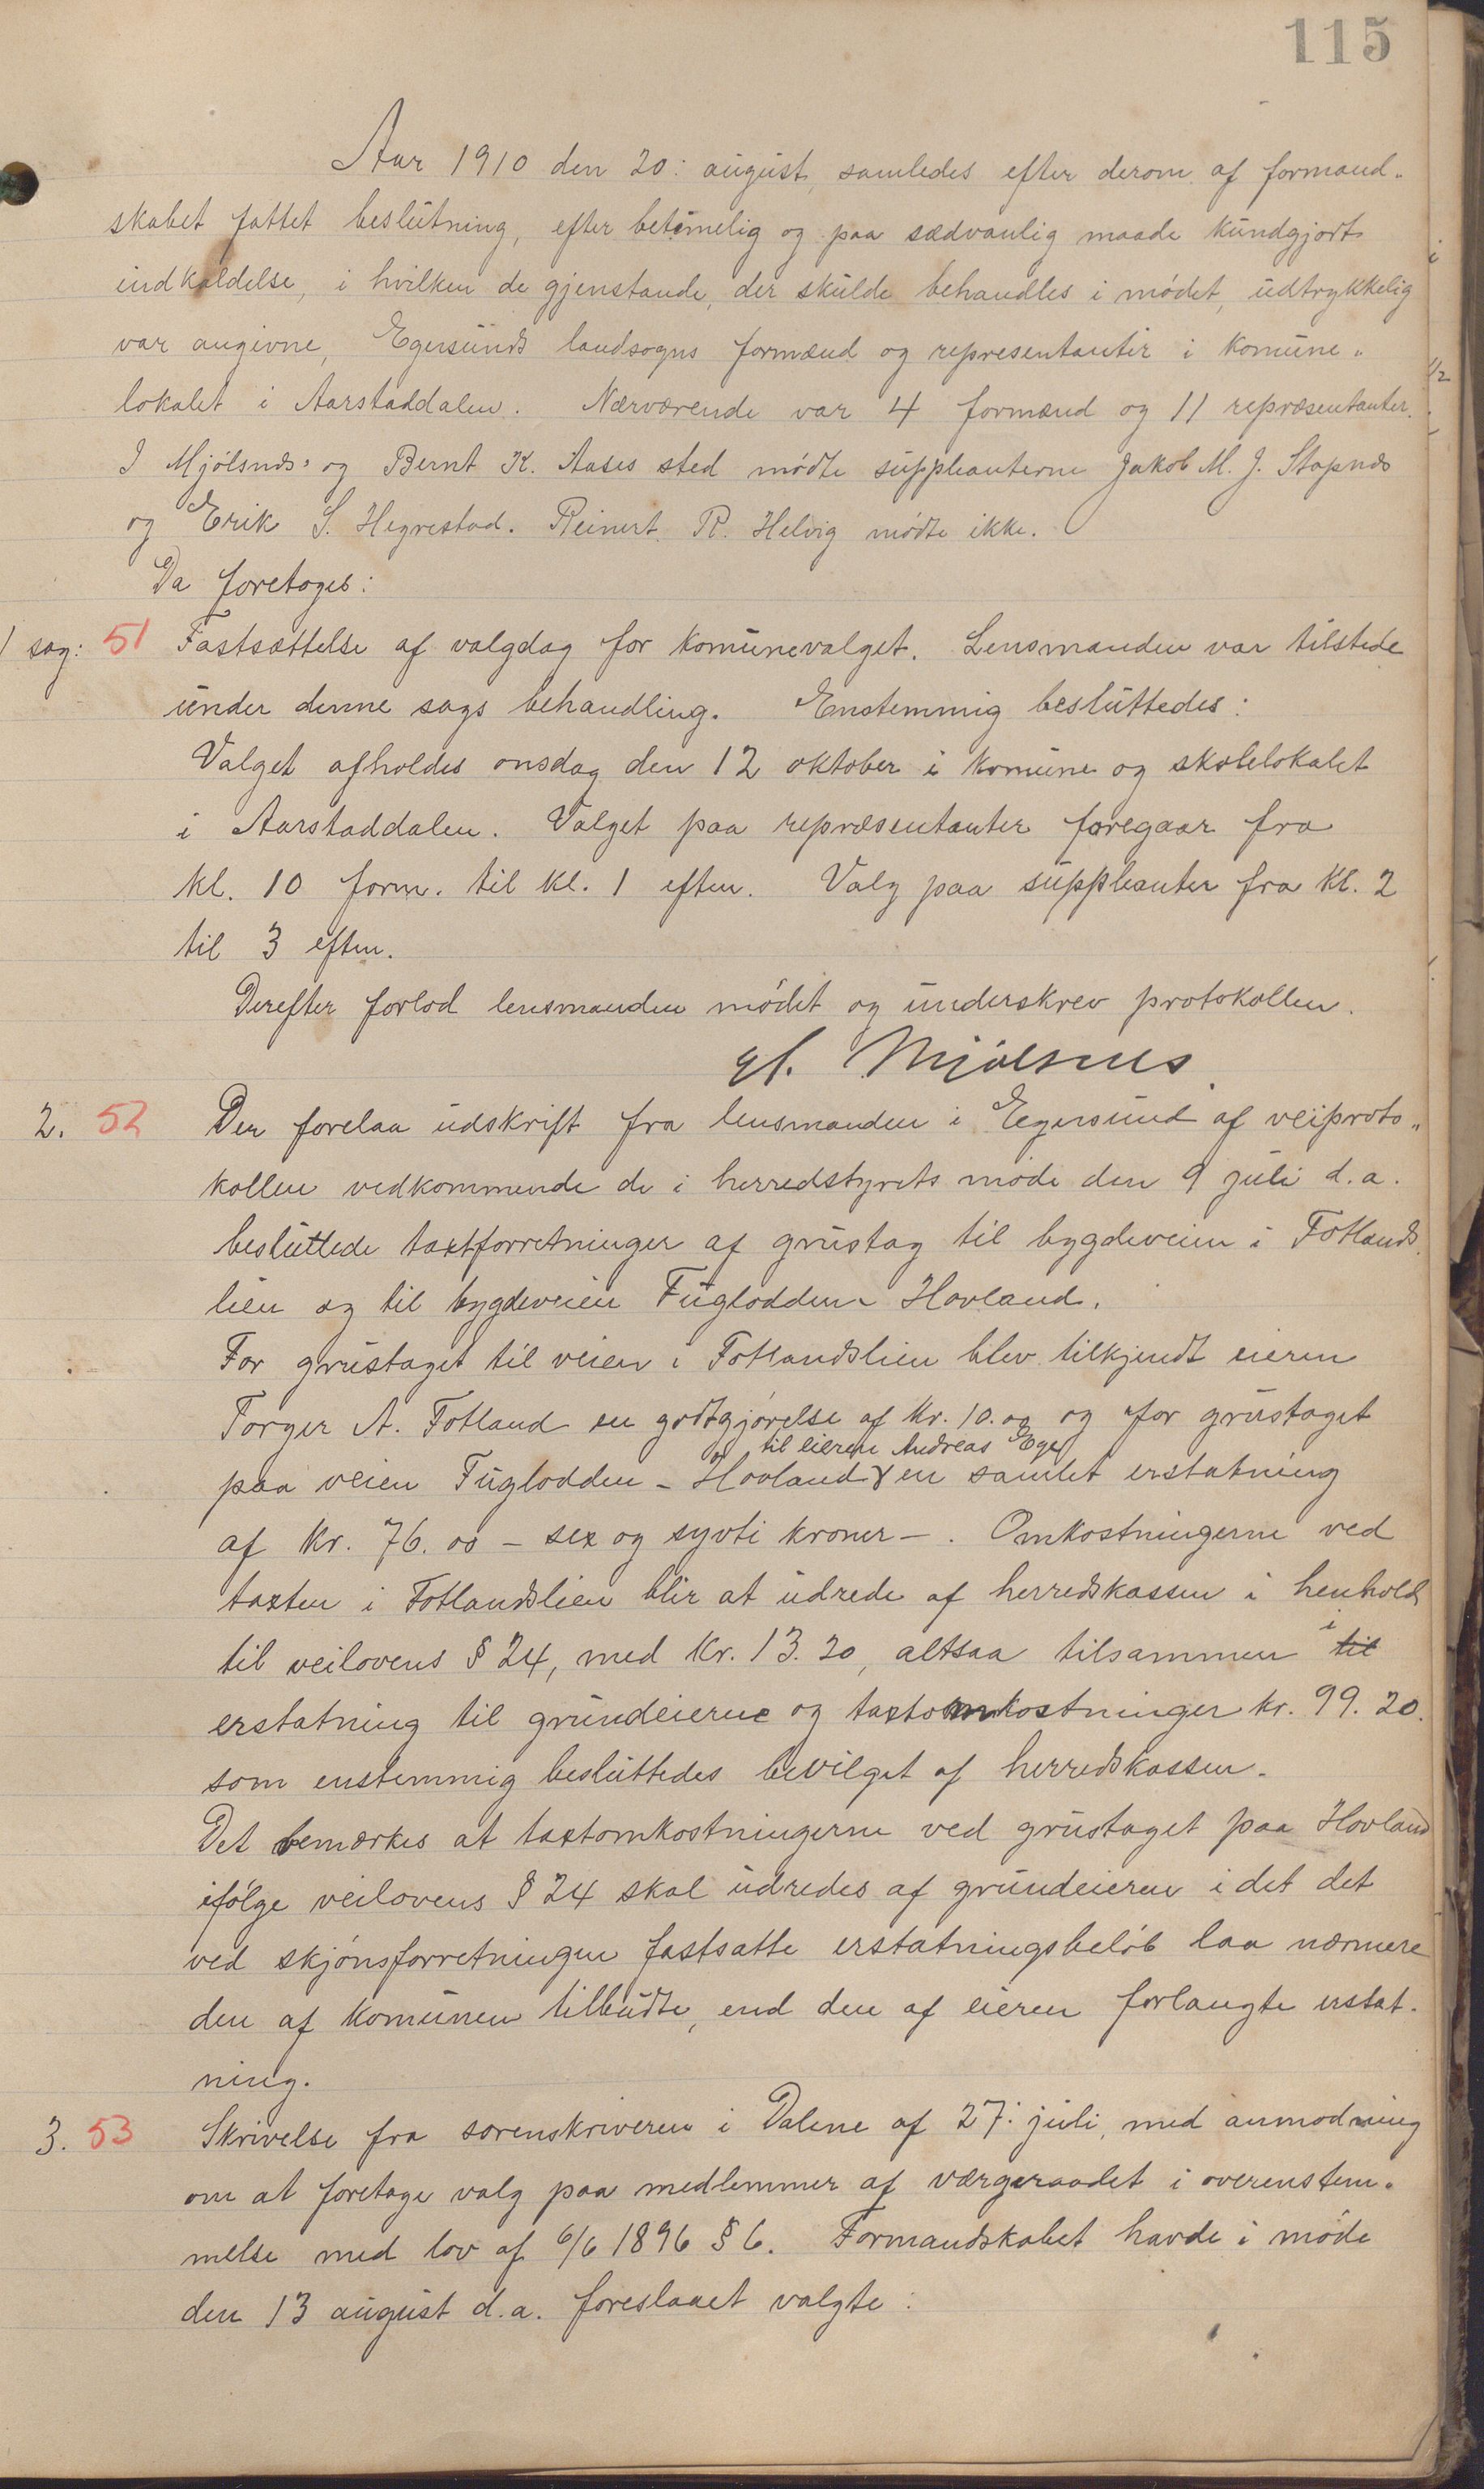 115
Aar 1910 den 20: august, samledes efter derom af formand-
skabet fattet beslutning, efter betimelig og paa sædvanlig maade kundgjort
indkaldelse, i hvilken de gjenstande, der skulde behandles i mødet, udtrykkelig
var angivne, Egersunds landsogns formænd og representanter i komune-
lokalet i Aarstaddalen. Nærværende var 4 formænd og 11 repræsentanter.
I Mjølsnæs' og Bernt K. Aases sted mødte suppleanterne Jakob M. J. Stapnæs
og Erik S. Hegrestad. Reinert R. Helvig mødte ikke.
Da foretoges:
1 sag: 51 Fastsættelse af valgdag for komunevalget. Lensmanden var tilstede
under denne sags behandling. Enstemmig besluttedes:
Valget afholdes onsdag den 12 oktober i komune og skolelokalet
i Aarstaddalen. Valget paa repræsentanter foregaar fra
kl. 10 form. til kl. 1 efterm. Valg paa suppleanter fra kl. 2
til 3 efterm.
Derefter forlod lensmanden mødet og underskrev protokollen.
Mjølsnes
2. 52 Der forelaa udskrift fra lensmanden i Egersund af veiproto-
kollen vedkommende de i herredstyrets møde den 9 juli d.a.
besluttede taxtforretninger af grustag til bygdeveien i Fotlands
lien og til bygdeveien Fuglodden - Hovland.
For grustaget til veien i Fotlandslien blev tilkjendt eieren
Torger A. Fotland en godtgjørelse af kr. 10.00 og for grustaget
til eieren Andreas Ege
paa veien Fuglodden - Hovland en samlet erstatning
af kr. 76.00 - sex og syvti kroner -. Omkostningerne ved
taxten i Fotlandslien blir at udrede af herredskassen i henhold
til veilovens § 24, med kr. 13.20, altsaa tilsammen i til
erstatning til grundeierne og taxtomkostninger kr. 99.20.
som enstemmig besluttedes bevilget af herredskassen.
Det bemærkes at taxtomkostningerne ved grustaget paa Hovland
ifølge veilovens § 24 skal udredes af grundeieren i det det
ved skjønsforretningen fastsatte erstatningsbeløb laa nærmere
den af komunen tilbudte, end den af eieren forlangte erstat-
ning.
3. 53 Skrivelse fra sorenskriveren i Dalene af 27: juli, med anmodning
om at foretage valg paa medlemmer af værgeraadet i overenstem-
melse med lov af 6/6 1896 § 6. Formandskabet havde i møde
den 13 august d.a. foreslaaet valgte: